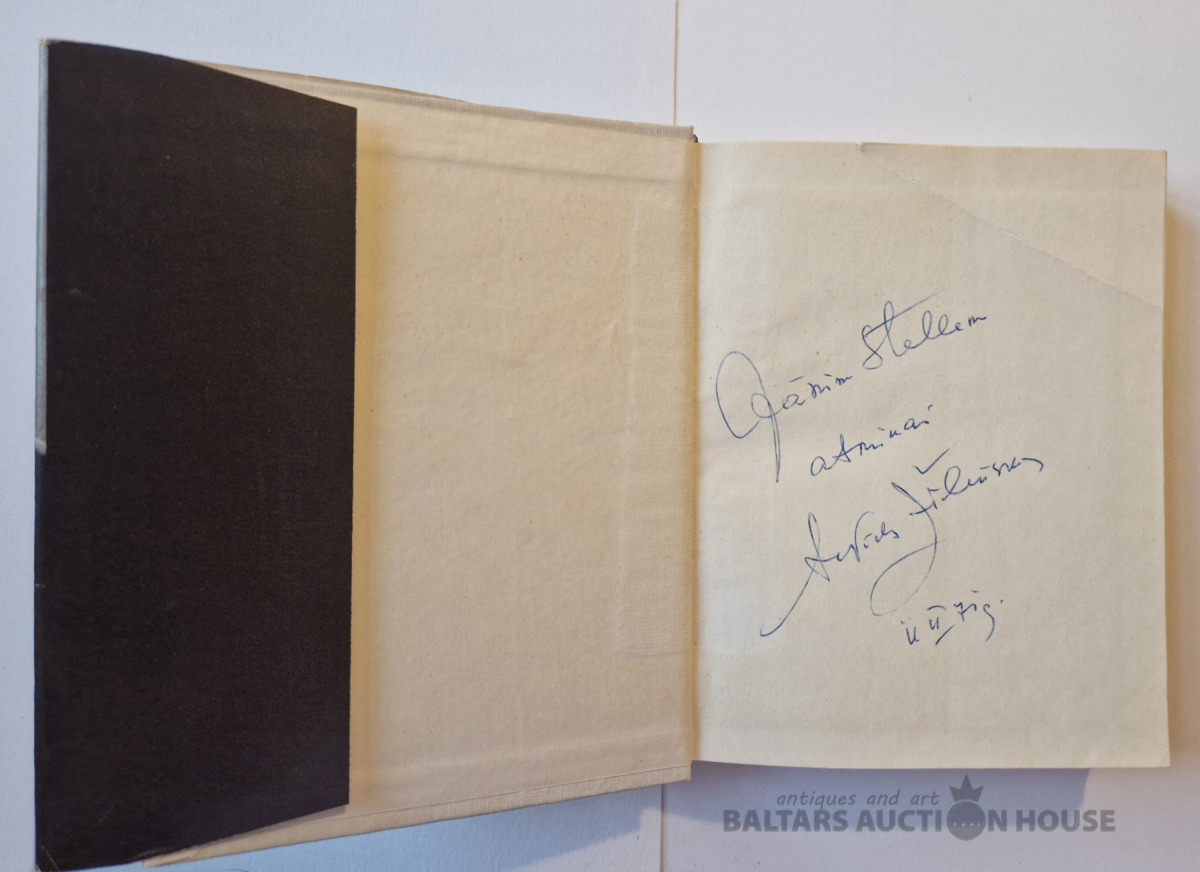 Jānim Stellem
atmiņai
Arvīds Žilinskis
11 II 71 g.
antiques and art
BALTARS AUCTION HOUSE